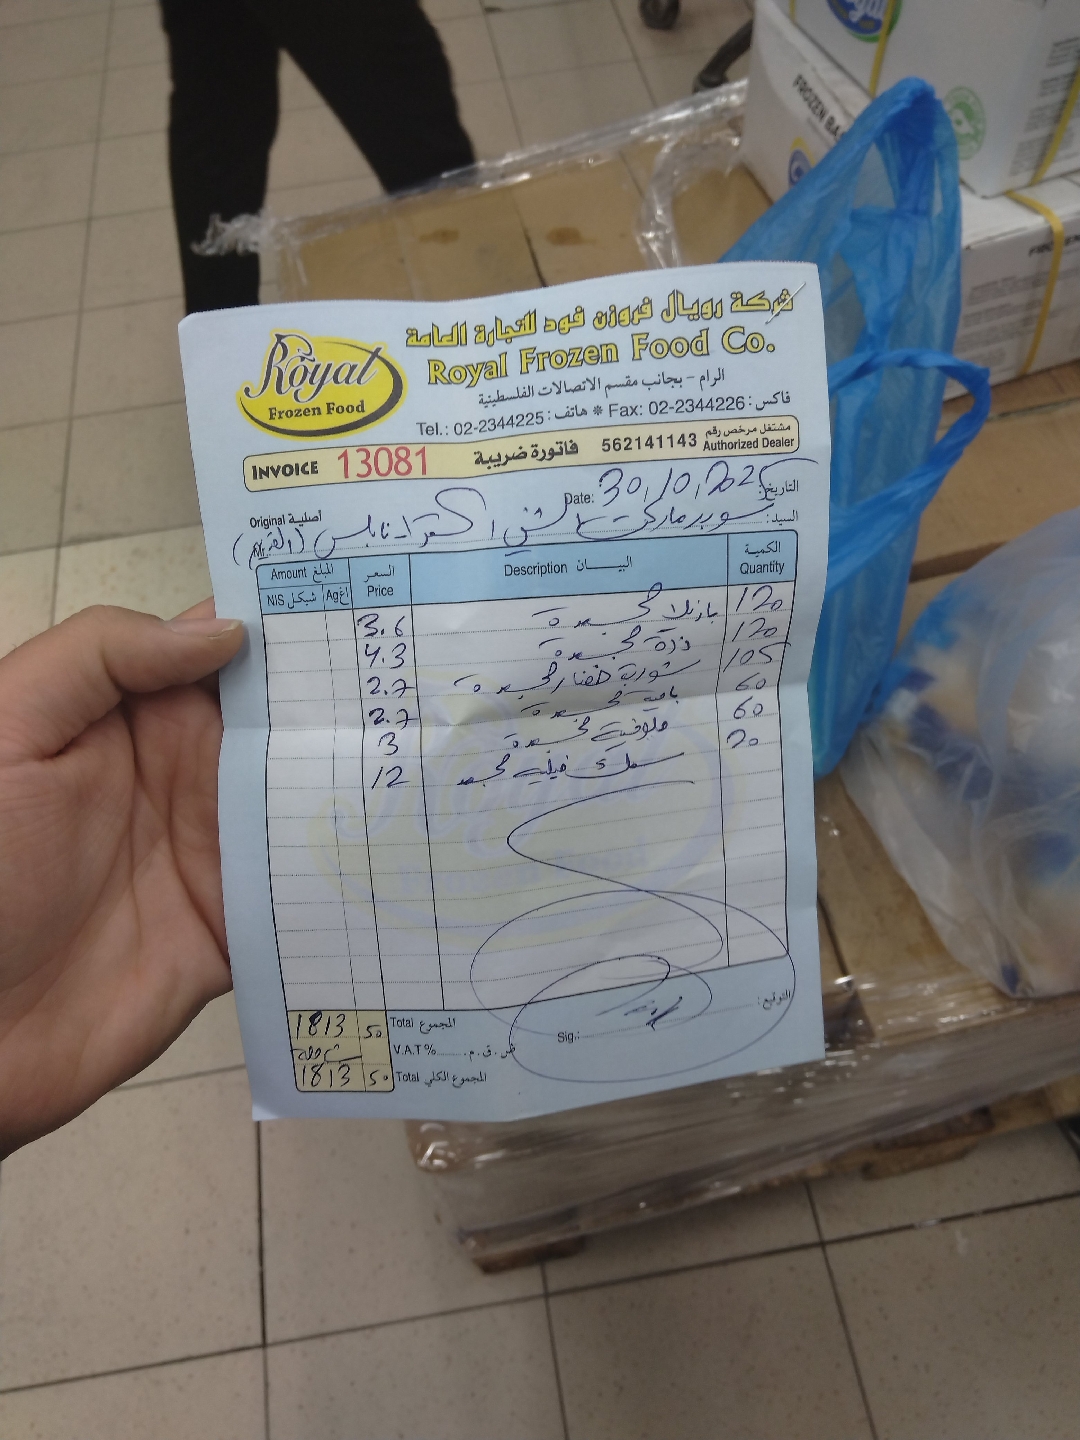 Royal
FROZEN
Royal
Frozen Food
شركة رويال فروزن فود للتجارة العامة
Royal Frozen Food Co.
الرام - بجانب مقسم الاتصالات الفلسطينية
Tel.: 02-2344225 : هاتف * Fax: 02-2344226 : فاكس
INVOICE 13081 فاتورة ضريبة 562141143 مشتغل مرخص رقم Authorized Dealer
Date: 30/10/2025 التاريخ:
Original أصلية
Mr. سوبرماركت نابلس السيد:
Amount المبلغ السعر Price Description البيـــان الكمية Quantity
NIS شيكل Ag اغ
3.6 بازيلا مجمدة 120
4.3 ذرة مجمدة 120
2.7 شوربة خضار مجمدة 105
2.7 باميه مجمدة 60
3 ملوخية مجمدة 60
12 سمك فيليه مجمد 20
1813 50 Total المجموع
V.A.T% ض.ق.م.
1813 50 Total المجموع الكلي
Sig.: التوقيع: